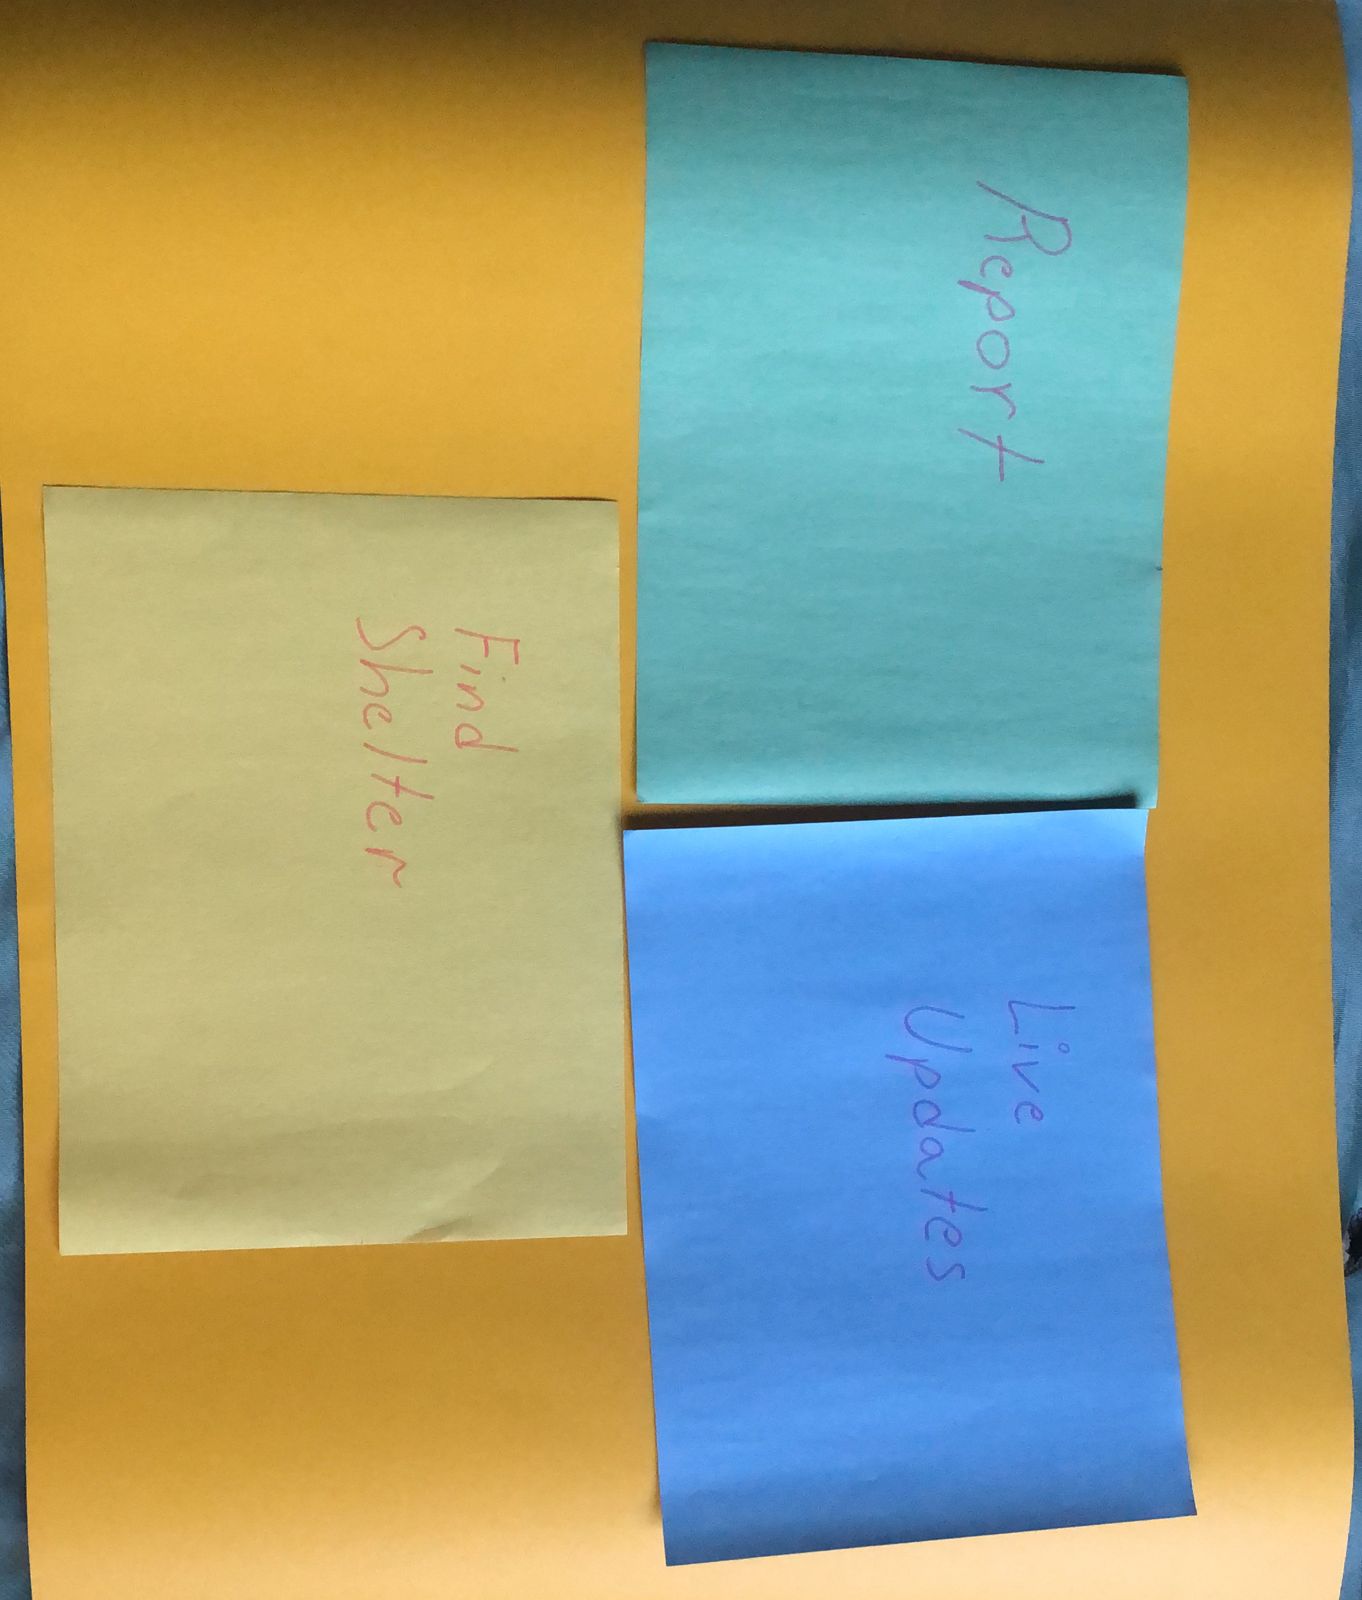 Report
Live
Updates
Find
Shelter